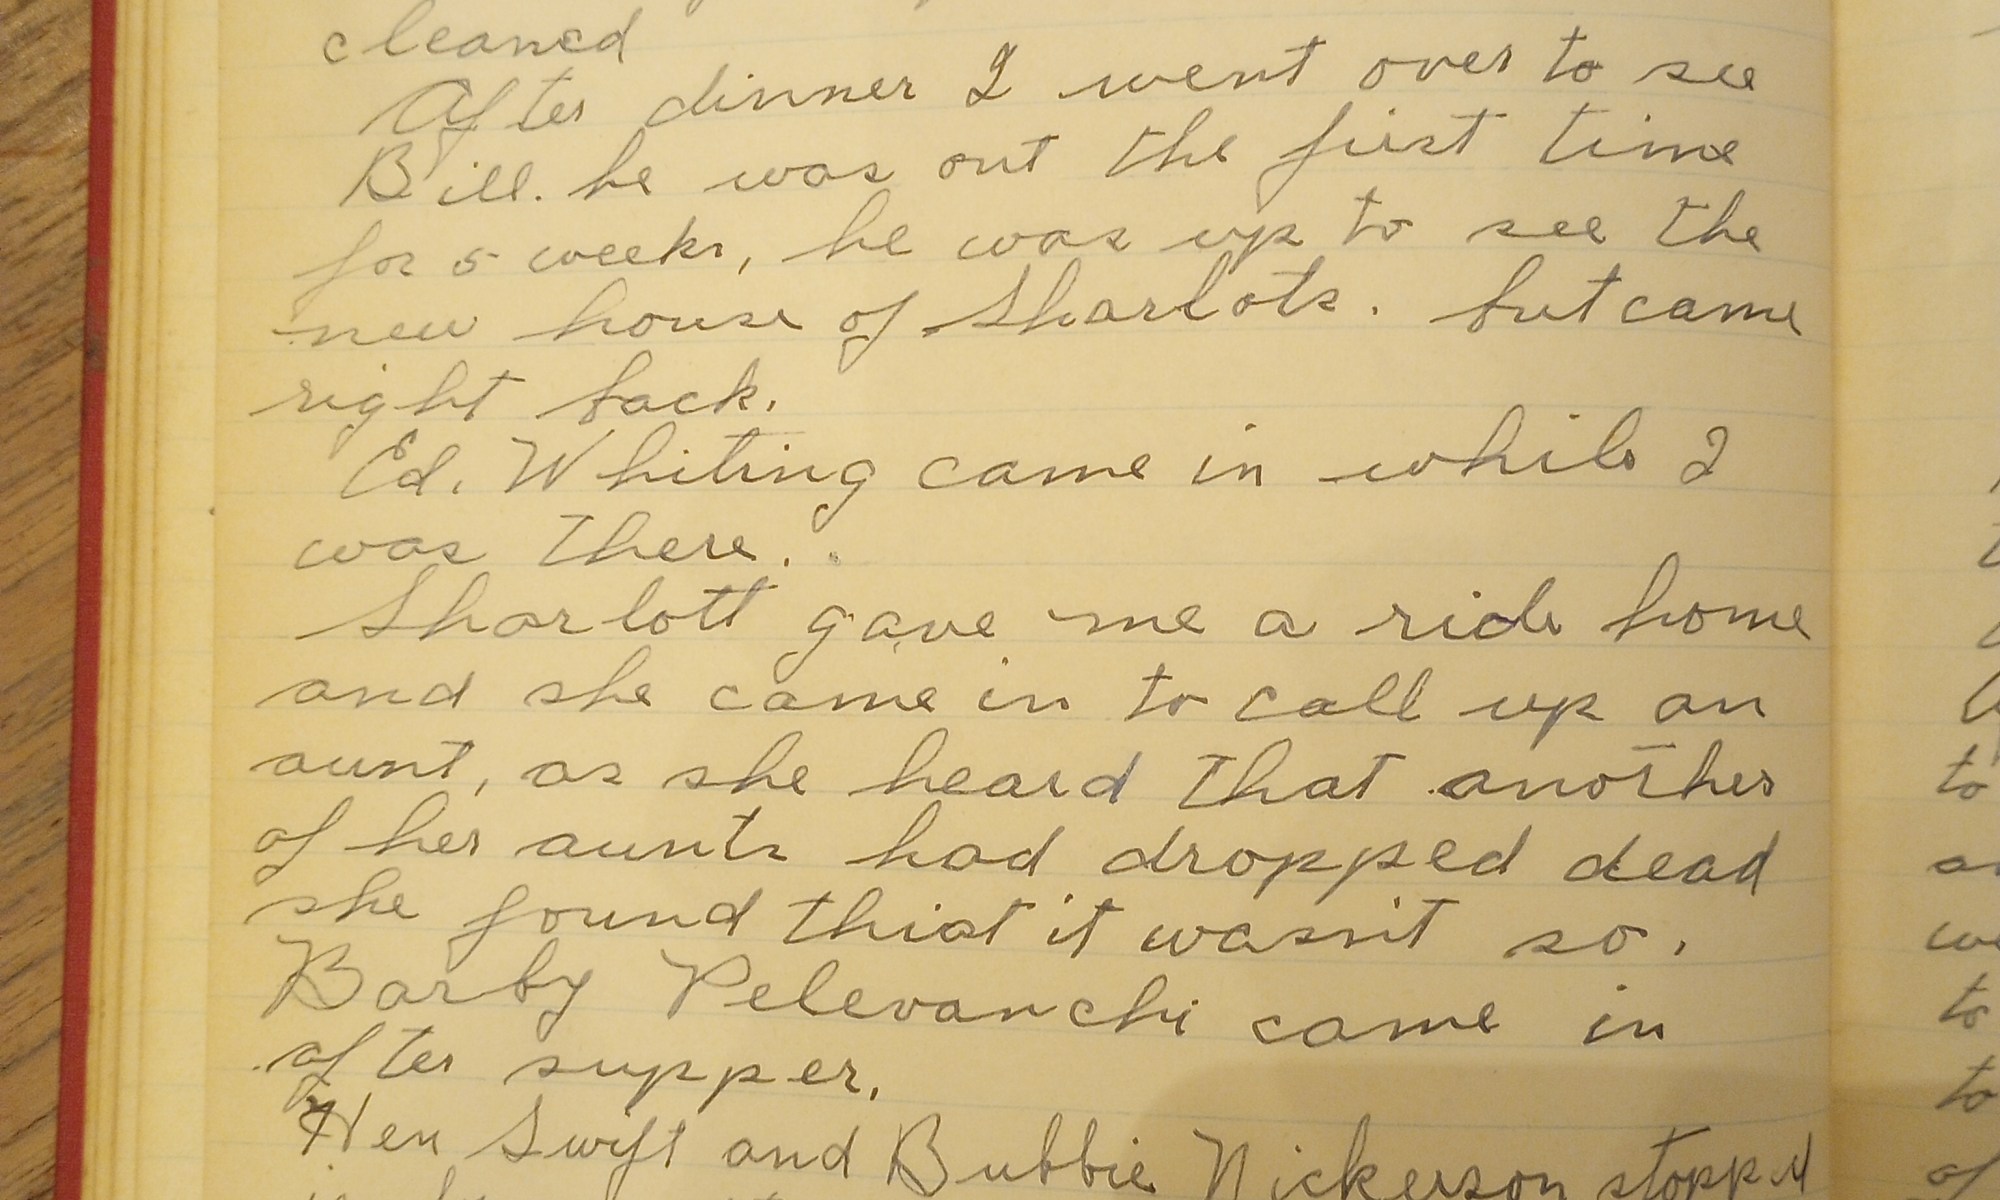 cleaned
After dinner I went over to see
Bill. he was out the first time
for 5 weeks, he was up to see the
new house of Sharlots. but came
right back.
Ed. Whiting came in while I
was there.
Sharlott gave me a ride home
and she came in to call up an
aunt, as she heard that another
of her aunts had dropped dead
she found that it wasn't so.
Barby Pelevanchi came in
after supper.
Hen Swift and Bubbie Nickerson stopped
to
an
we
to
to
of